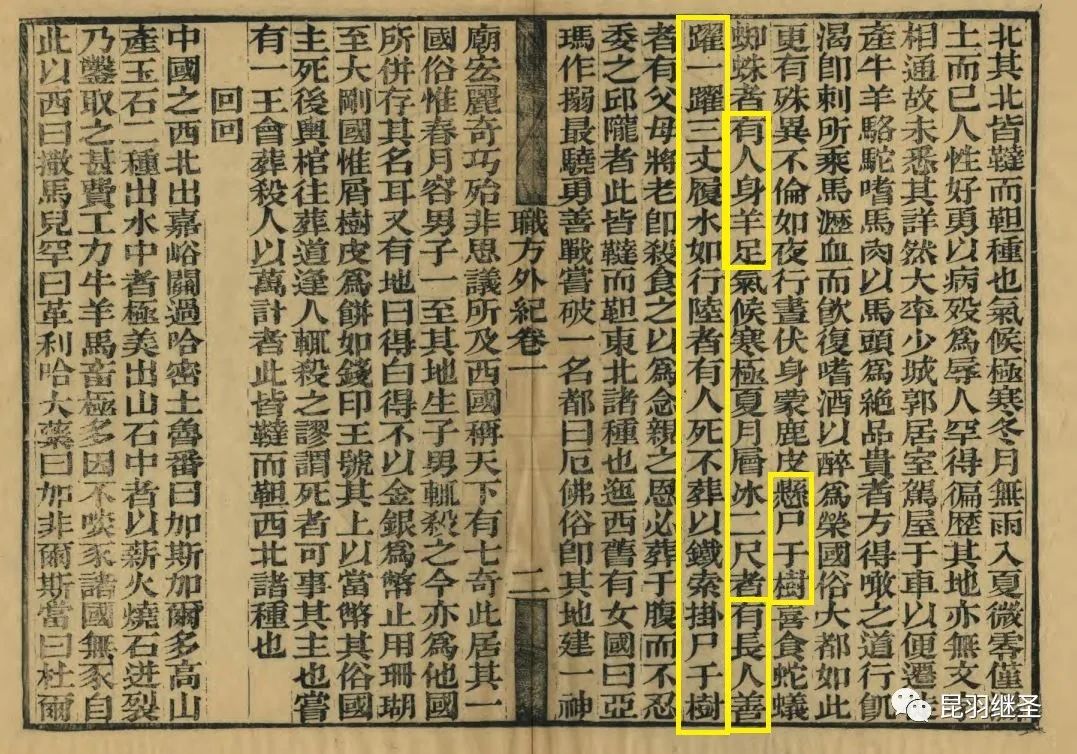 北其北皆韃而靼種也氣候極寒冬月無雨入夏微零僅
土而已人性好勇以病歿爲辱人罕得徧歷其地亦無文
相通故未悉其詳然大率少城郭居室駕屋于車以便遷
產牛羊駱駝嗜馬肉以馬頭爲絕品貴者方得噉之道行飢
渴卽刺所乘馬瀝血而飮復嗜酒以醉爲榮國俗大都如此
更有殊異不倫如夜行晝伏身蒙鹿皮懸尸于樹喜食蛇蟻
蜘蛛者有人身羊足氣候寒極夏月層冰二尺者有長人善
躍一躍三丈履水如行陸者有人死不葬以鐵索掛尸于樹
者有父母將老卽殺食之以爲念親之恩必葬于腹而不忍
委之邱隴者此皆韃而靼東北諸種也迤西舊有女國曰亞
瑪作搦最驍勇善戰嘗破一名都曰厄佛俗卽其地建一神
職方外紀卷一 二
廟宏麗奇巧殆非思議所及西國稱天下有七奇此居其一
國俗惟春月容男子一至其地生子男輒殺之今亦爲他國
所併存其名耳又有地曰得白得不以金銀爲幣止用珊瑚
至大剛國惟屑樹皮爲餅如錢印王號其上以當幣其俗國
主死後輿棺往葬道逢人輒殺之謬謂死者可事其主也嘗
有一王會葬殺人以萬計者此皆韃而靼西北諸種也
回回
中國之西北出嘉峪關過哈密土魯番曰加斯加爾多高山
產玉石二種出水中者極美出山石中者以薪火燒石迸裂
乃鑿取之甚費工力牛羊馬畜極多因不啖豕諸國無豕自
此以西曰撒馬兒罕曰革利哈大藥曰加非爾斯當曰杜爾
昆羽继圣